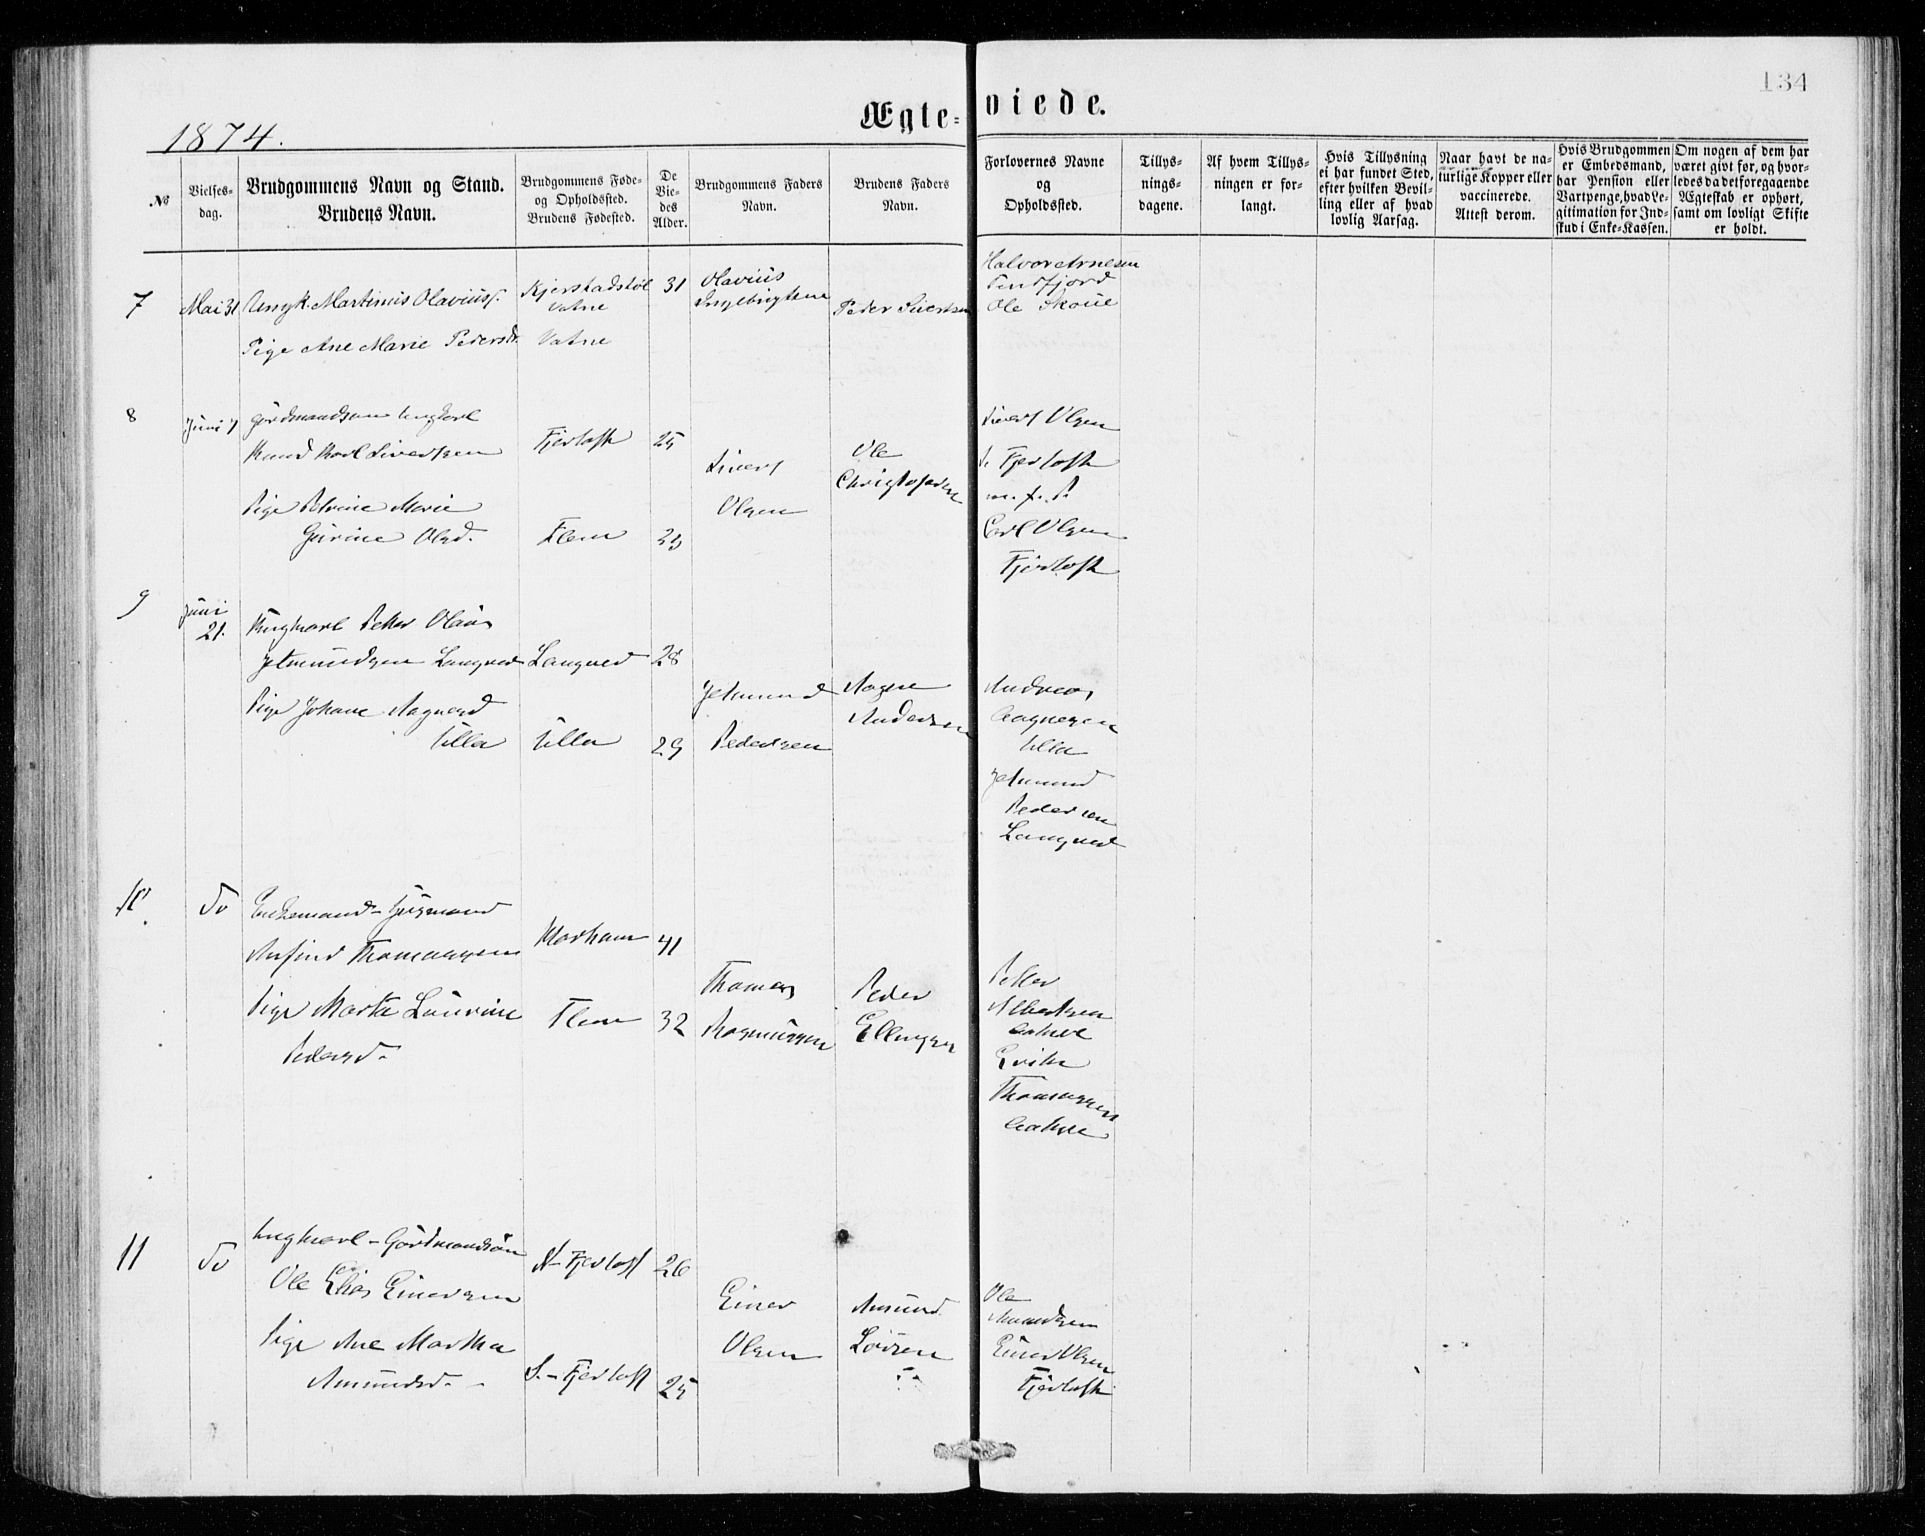 134
Ægte-viede.
1874.
№
Vielses-
dag.
Brudgommens Navn og Stand.
Brudens Navn.
Brudgommens Føde-
og Opholdssted.
Brudens Fødested.
De
Vie-
des
Alder.
Brudgommens Faders
Navn.
Brudens Faders
Navn.
Forlovernes Navne
og
Opholdssted.
Tillys-
nings-
dagene.
Af hvem Tillys-
ningen er for-
langt.
Hvis Tillysning
ei har fundet Sted,
efter hvilken Bevil-
ling eller af hvad
lovlig Aarsag.
Naar havt de na-
turlige Kopper eller
vaccinerede.
Attest derom.
Hvis Brudgommen
er Embedsmand,
har Pension eller
Vartpenge, hvad Le-
gitimation for Ind-
skud i Enke-Kassen.
Om nogen af dem har
været givt før, og hvor-
ledes da det foregaaende
Ægteskab er ophørt,
samt om lovligt Skifte
er holdt.
7
Mai 31
Ungk. Martinus Olavius.
Pige Ane Marie Pedersd.
Kjerstadstøl
Vatne
Vatne
31
Olavius
Ingebrigtsen
Peder Sivertsen
Halvor Arnesen
Tenfjord
Ole Skoue
8
Juni 7
Gårdmandsøn Ungkarl
Knud Karl Sivertsen
Pige Petrine Marie
Gurine Olsd.
Fjertoft
Flem
25
23
Sivert
Olsen
Ole
Christofersen
Sivert Olsen
S. Fjertoft
m. f. P.
Carl Olsen
Fjertoft
9
Juni
21.
Ungkarl Petter Olaus
Jetmundsen Langved
Pige Johane Aagnesd
Ulla
Langved
Ulla
28
29
Jetmund
Pedersen
Aagne
Andersen
Andreas
Aagnesen
Ulla
Jetmund
Pedersen
Langved
10
Do
Enkemand - Husmand
Anfind Thomassen
Pige Marte Laurine
Pedersd.
Flem
41
32
Thomas
Rasmussen
Peder
Ellingsen
Petter
Albertsen
Thomassen
11
Do
Ungkarl - Gårdmandsøn
Ole Elias Einersen
Pige Ane Martha
Amundsd.
N - Fjertoft
S. - Fjertoft
26
25
Einer
Olsen
Amund
Larsen
Ole
Amundsen
Einer Olsen
Fjertoft